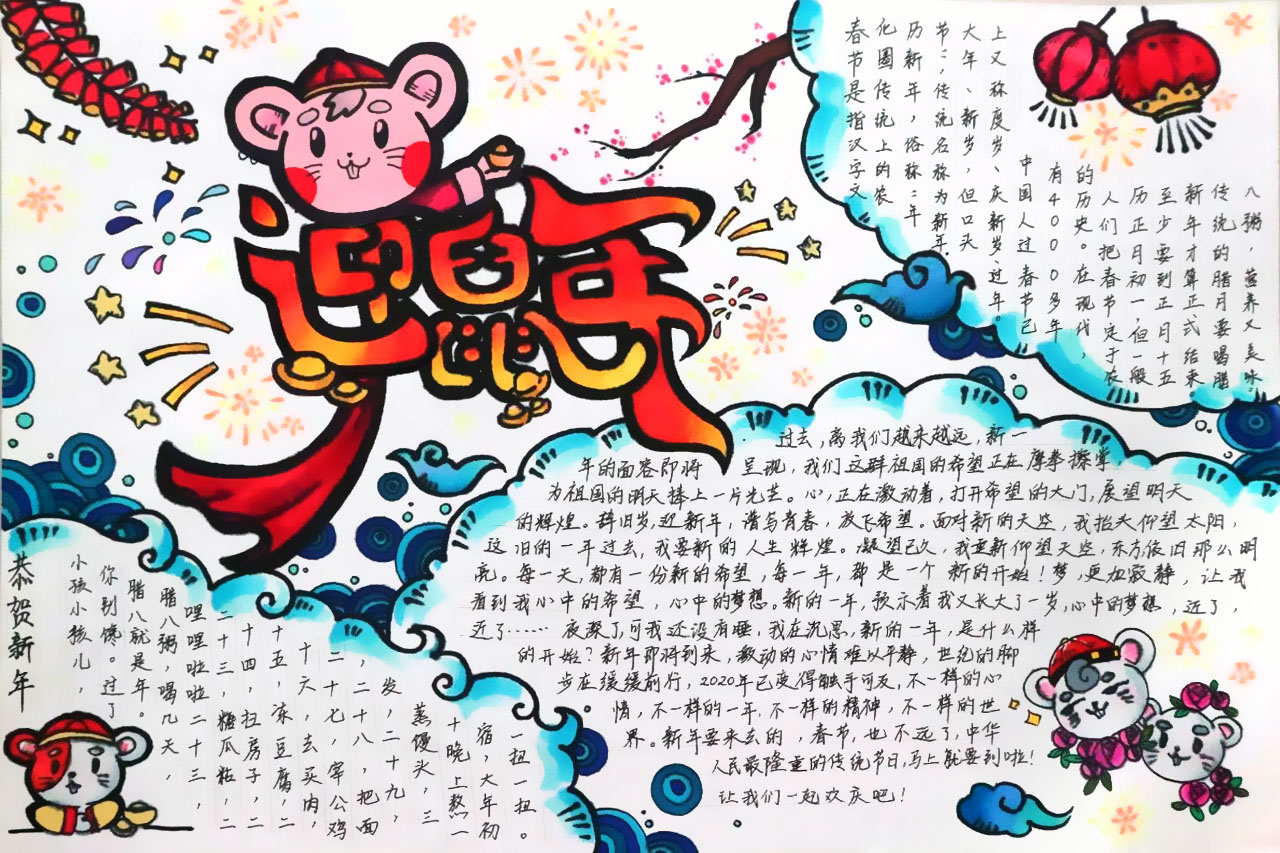 迎鼠年
春节是指汉字文
化圈传统上的农
历新年，俗称“年
节”，传统名称为新年、
大年、新岁，但口头
上又称度岁、庆新岁、过年。
中国人过春节已
有4000多年
的历史。在现代，
人们把春节定于农
历正月初一，但一般
至少要到正月十五
新年才算正式结束
传统的腊月要喝腊
八粥，营养又美味
过去，离我们越来越远，新一
年的面容即将 呈现，我们这群祖国的希望正在摩拳擦掌，
为祖国的明天捧上一片光芒。心，正在激动着，打开希望的大门，展望明天
的辉煌。辞旧岁，迎新年，谱写青春，放飞希望。面对新的天空，我抬头仰望太阳，
这旧的一年过去，我要新的人生辉煌。凝望已久，我重新仰望天空，东方依旧那么明
亮。每一天，都有一份新的希望，每一年，都是一个新的开始！梦，更加寂静，让我
看到我心中的希望，心中的梦想。新的一年，预示着我又长大了一岁，心中的梦想，近了，
近了……夜深了，可我还没有睡，我在沉思，新的一年，是什么样
的开始？新年即将到来，激动的心情难以平静，世纪的脚
步在缓缓前行，2020年已变得触手可及，不一样的心
情，不一样的一年，不一样的精神，不一样的世
界。新年要来去的，春节，也不远了，中华
人民最隆重的传统节日，马上就要到啦！
让我们一起欢庆吧！
恭贺新年
小孩小孩儿，
你别馋。过了
腊八就是年。
腊八粥，喝几天，
哩哩啦啦二十三，
二十三，糖瓜粘，二
十四，扫房子，二
十五，冻豆腐，二
十六，去买肉，
二十七，宰公鸡
，二十八，把面
发，二十九，
蒸馒头，三
十晚上熬一
宿，大年初
一扭一扭。